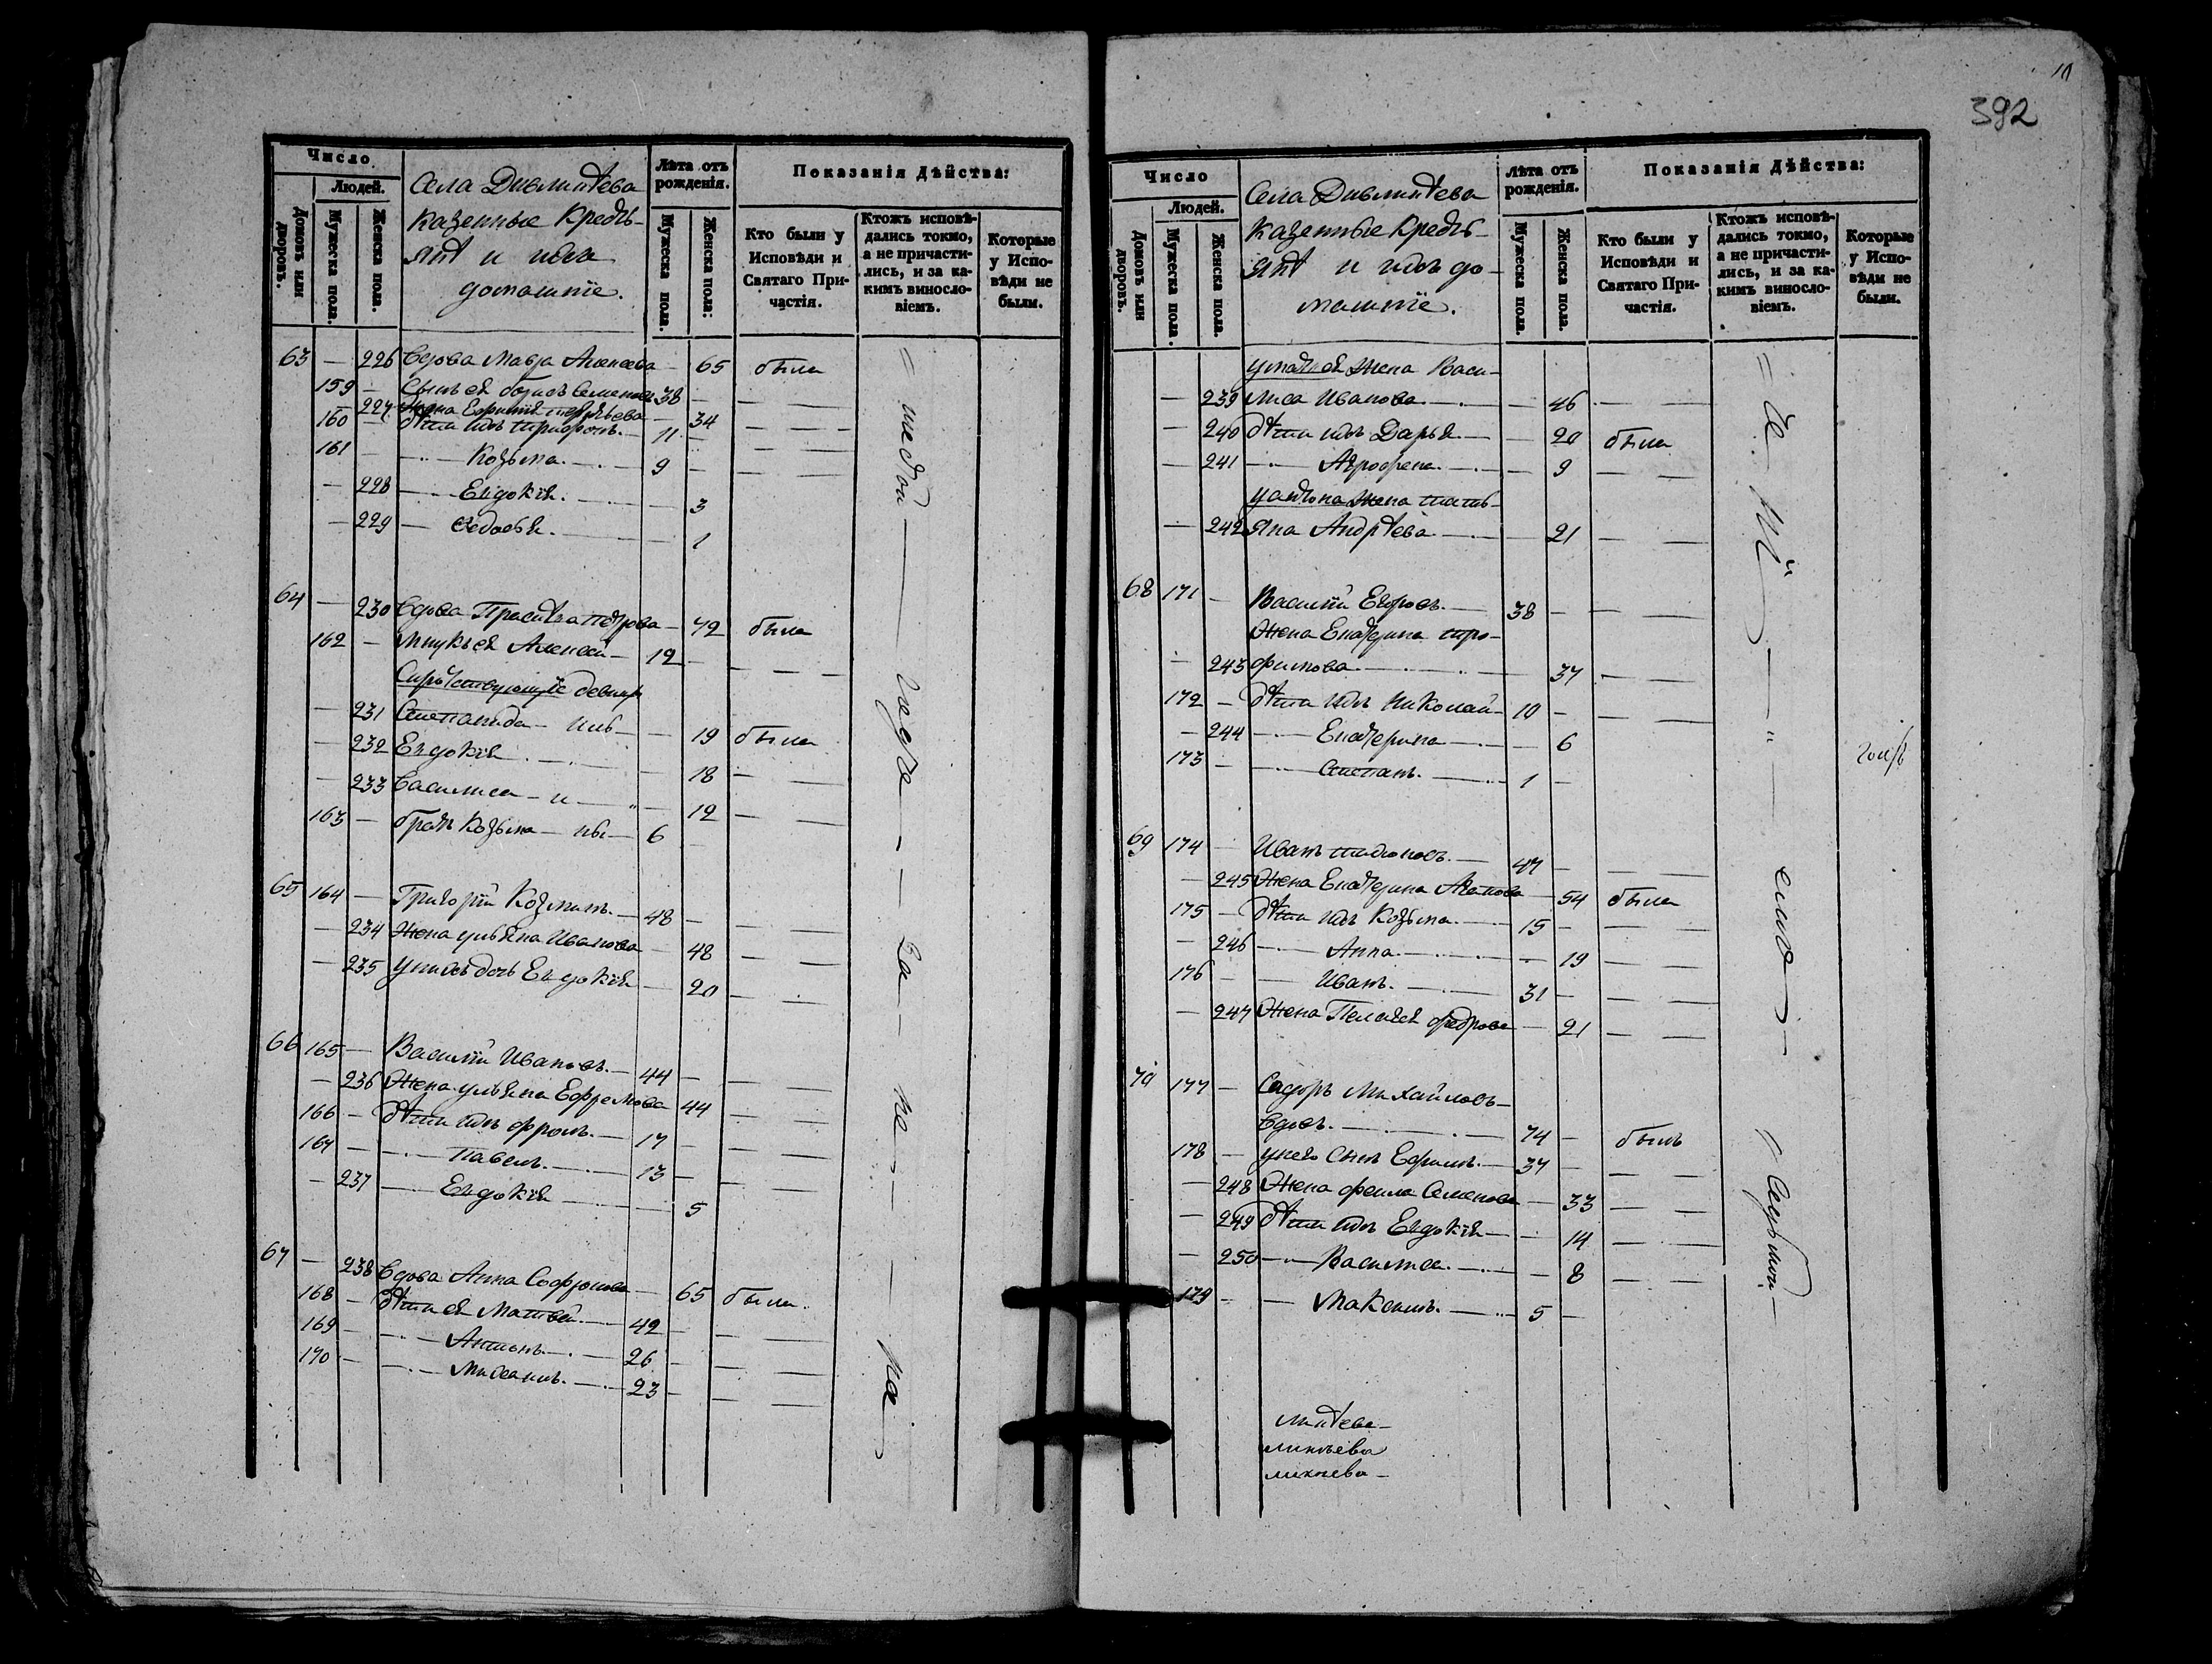 10
392
Число
Людей.
Домовъ или дворовъ.
Мужеска пола.
Женска пола.
Села Дивлитѣева
казенные Кресть-
янѣ и ихъ
домашніе.
Лѣта отъ рожденія.
Мужеска пола.
Женска пола:
Показанія Дѣйства:
Кто были у Исповѣди и Святаго Причастія.
Ктожъ исповѣдались токмо, а не причастились, и за какимъ винословіемъ.
Которые у Исповѣди не были.
63 — 226 Вдова Мавра Алексеева — 65 была
159 — Сынъ ея борисъ Семеновъ 38 —
— 227 Жена Ефимія — 34
160 — дѣти ихъ трифонъ. — 11 —
161 — Козьма. — 9 —
— 228 — Евдокія. — 3
— 229 — Федосья. — 1
64 — 230 Вдова Праск Петрова — 72 была
162 — Внукъ ея Алексей — 12 —
девицы
— 231 Степанида — 19 была
— 232 Евдокія — 18 —
— 233 Василиса — и — 12 —
163 — братъ Козьма — 6 —
65 164 — Григорій Козминъ. — 48 —
— 234 Жена ульяна Иванова — 48 —
— 235 у нихъ дочь Евдокія — 20 —
66 165 — Василій Ивановъ. — 44 —
— 236 Жена ульяна Ефремова 44 —
166 — дѣти ихъ фролъ. — 17 —
167 — Павелъ. — 13 —
— 237 — Евдокія — 5
67 — 238 Вдова Анна Софронова — 65 была.
168 — дѣти ея Матвей. — 42 —
169 — Антонъ — 26 —
170 — — 23 —
Число
Людей.
Домовъ или дворовъ.
Мужеска пола.
Женска пола.
Села Дивлитѣева
казенные Кресть-
янѣ и ихъ до-
машніе.
Лѣта отъ рожденія.
Мужеска пола.
Женска пола.
Показанія Дѣйства:
Кто были у Исповѣди и Святаго Причастія.
Ктожъ исповѣдались токмо, а не причастились, и за какимъ винословіемъ.
Которые у Исповѣди не были.
жена Васи-
— 239 лиса Иванова — 46 —
— 240 дѣти ихъ Дарья — 20 была
— 241 — Агрофена. — 9
у антона жена тать-
— 242 яна Андрѣева — 21 —
68 171 — Василій Егоровъ. — 38 —
Жена Екатерина тро-
— 243 фимова — 37 —
172 — дѣти ихъ Николай — 10 —
— 244 — Екатерина — 6
173 — Степанъ. — 1 —
69 174 — Иванъ — 47 —
— 245 Жена Екатерина — 54 была
175 — дѣти ихъ Козьма — 15 —
— 246 — Анна — 19 —
176 — Иванъ. — 31 —
— 247 Жена Пелагея федорова — 21 —
70 177 — Сидоръ Михайловъ —
вдовъ. — 74 — былъ
178 — у него сынъ Ефимъ. — 37 —
— 248 Жена фекла Семенова — 33 —
— 249 дѣти ихъ Евдокія — 14 —
— 250 — Василиса — 8 —
179 — Максимъ. — 5 —